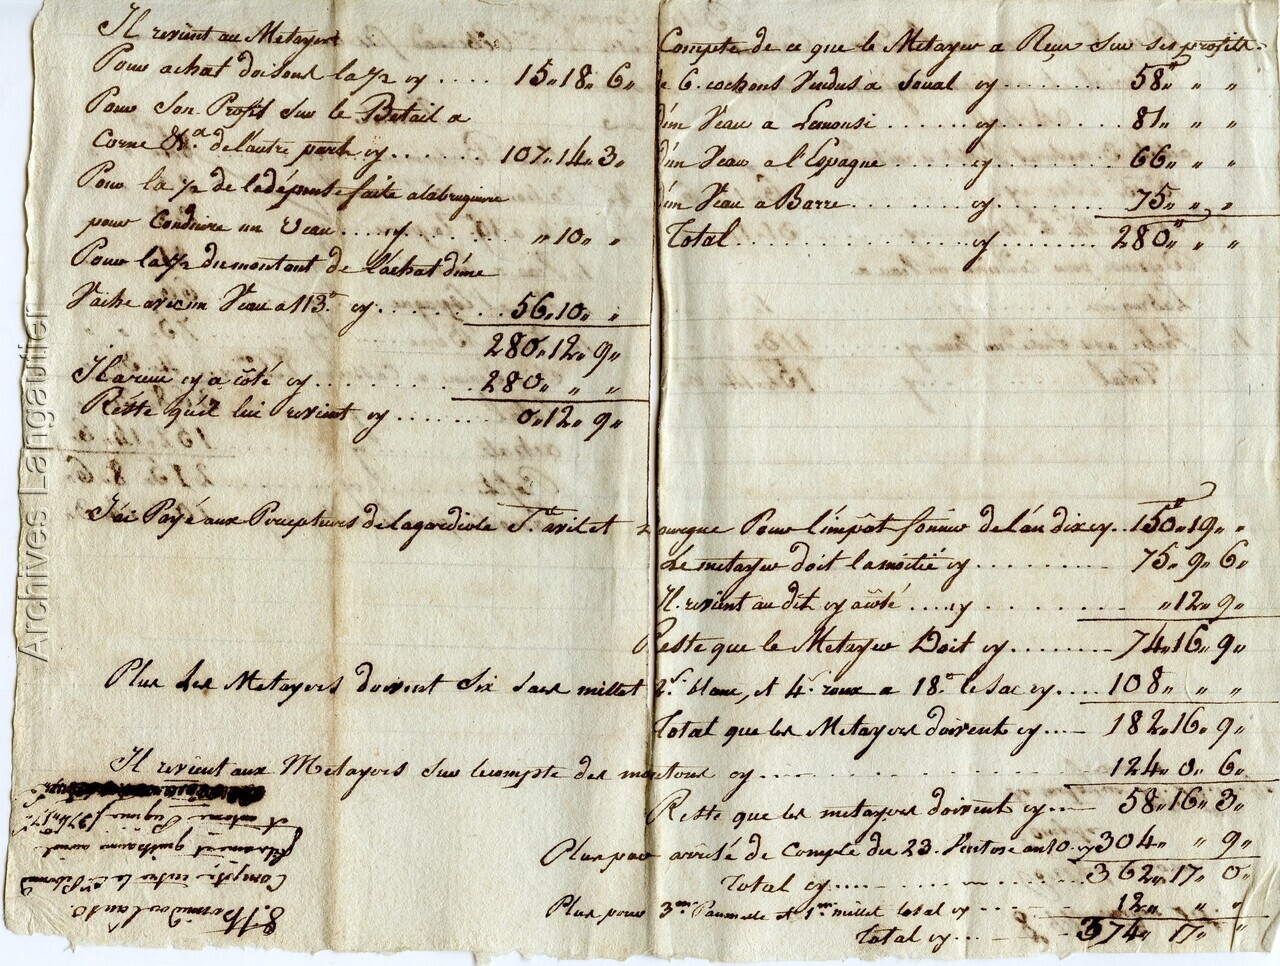 Il revient au Metayer
Pour achat doisons la ½ cy .... 15,, 18,, 6,,
Pour Son Profit Sur le Betail a
Corne &a. de l'autre part cy ...... 107,, 14,, 3,,
Pour la ½ de la dépense faite a labruguiere
pour Conduire un Veau .....cy....... ,, 10,, ,,
Pour la ½ du montant de l'achat d'une
Vache avec un Veau a 113.# cy....... 56,, 10,, ,,
280,, 12,, 9,,
Il a reçu cy a côté cy........... 280,, ,, ,,
Réste qu'il lui revient cy ...... 0,, 12,, 9,,
Compte de ce que le Metayer a Reçu Sur ses profits.
de 6. cochons Vendus a Soual cy ....... 58# ,, ,,
d'un Veau a Lemousi ....... cy....... 81,, ,, ,,
d'un Veau a l'Espagne ..... cy....... 66,, ,, ,,
d'un Veau a Barre ......... cy ....... 75,, ,, ,,
Total.................. cy ....... 280# ,, ,,
J'ai Payé aux Percepteurs de Lagardiole St. avit et Pour l'impôt foncier de l'an dix cy.. 150# 19,, ,,
Le metayer doit la moitié cy ......... 75,, 9,, 6,,
Il revient au dit cy a côté .....cy ......... ,, 12,, 9,,
Reste que le Metayer Doit cy ....... 74,, 16,, 9,,
Plus Les Metayers doivent Six Sacs millet 2.s blanc, et 4. roux a 18.# le sac cy.... 108,, ,, ,,
Total que les Metayers doivent cy..... 182,, 16,, 9,,
Il revient aux Metayers Sur le compte des moutons cy.................. 124,, 0,, 6,,
Reste que les metayers doivent cy..... 58,, 16,, 3,,
Plus pour arrêté de Compte du 23. Ventose an 10. cy 304,, ,, 9,,
Total cy............ 362,, 17,, 0,,
Plus pour 3.m Paumelle et 1.m millet total cy ...... 12,, ,, ,,
Total cy........ 374,, 17,, ,,
8. Thermidor l'an 10.
Compte entre le
et guillaume
et antoine 374# 17 s
Archives Langautier